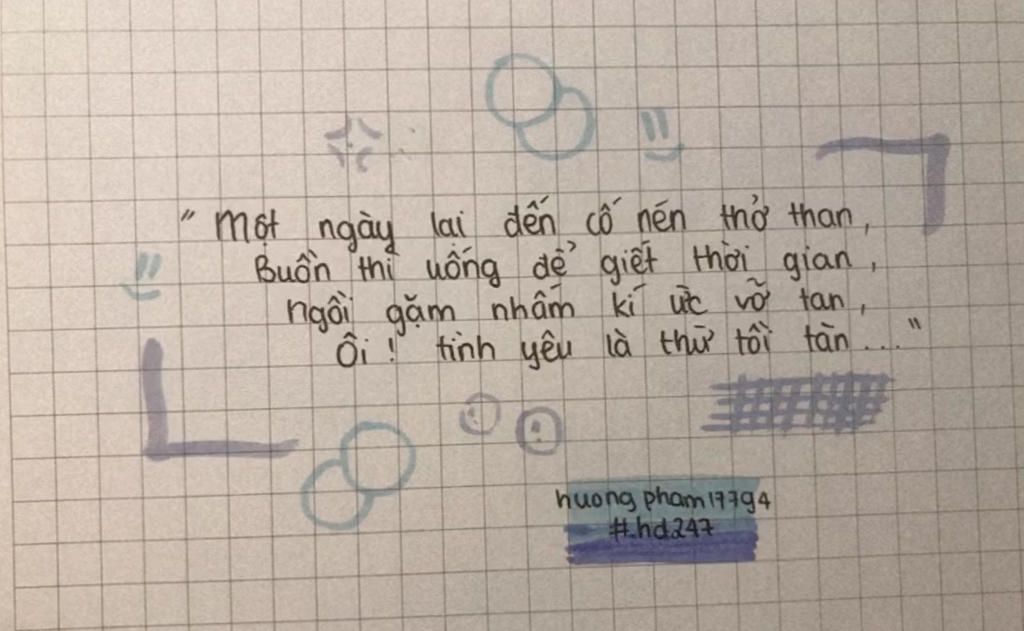 " Một ngày lại đến cố nén thở than,
Buồn thì uống để giết thời gian,
ngồi gặm nhấm kí ức vỡ tan,
Ôi! tình yêu là thứ tồi tàn..."
huongpham17794
#.hd247